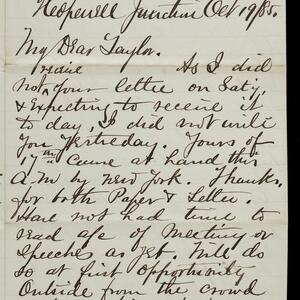 Hopewell Junction Oct 19/85.
My Dear Taylor.
As I did
not recive your letter on Sat'y,
& Expecting to receive it
to day, I did not write
you yesterday. Yours of
17th Came at hand this
A.M by New York. Thanks
for both Paper & Letter.
Have not had time to
read a/c of Meeting or
Speeches as yet. Will do
so at first opportunity
Outside from the crowd